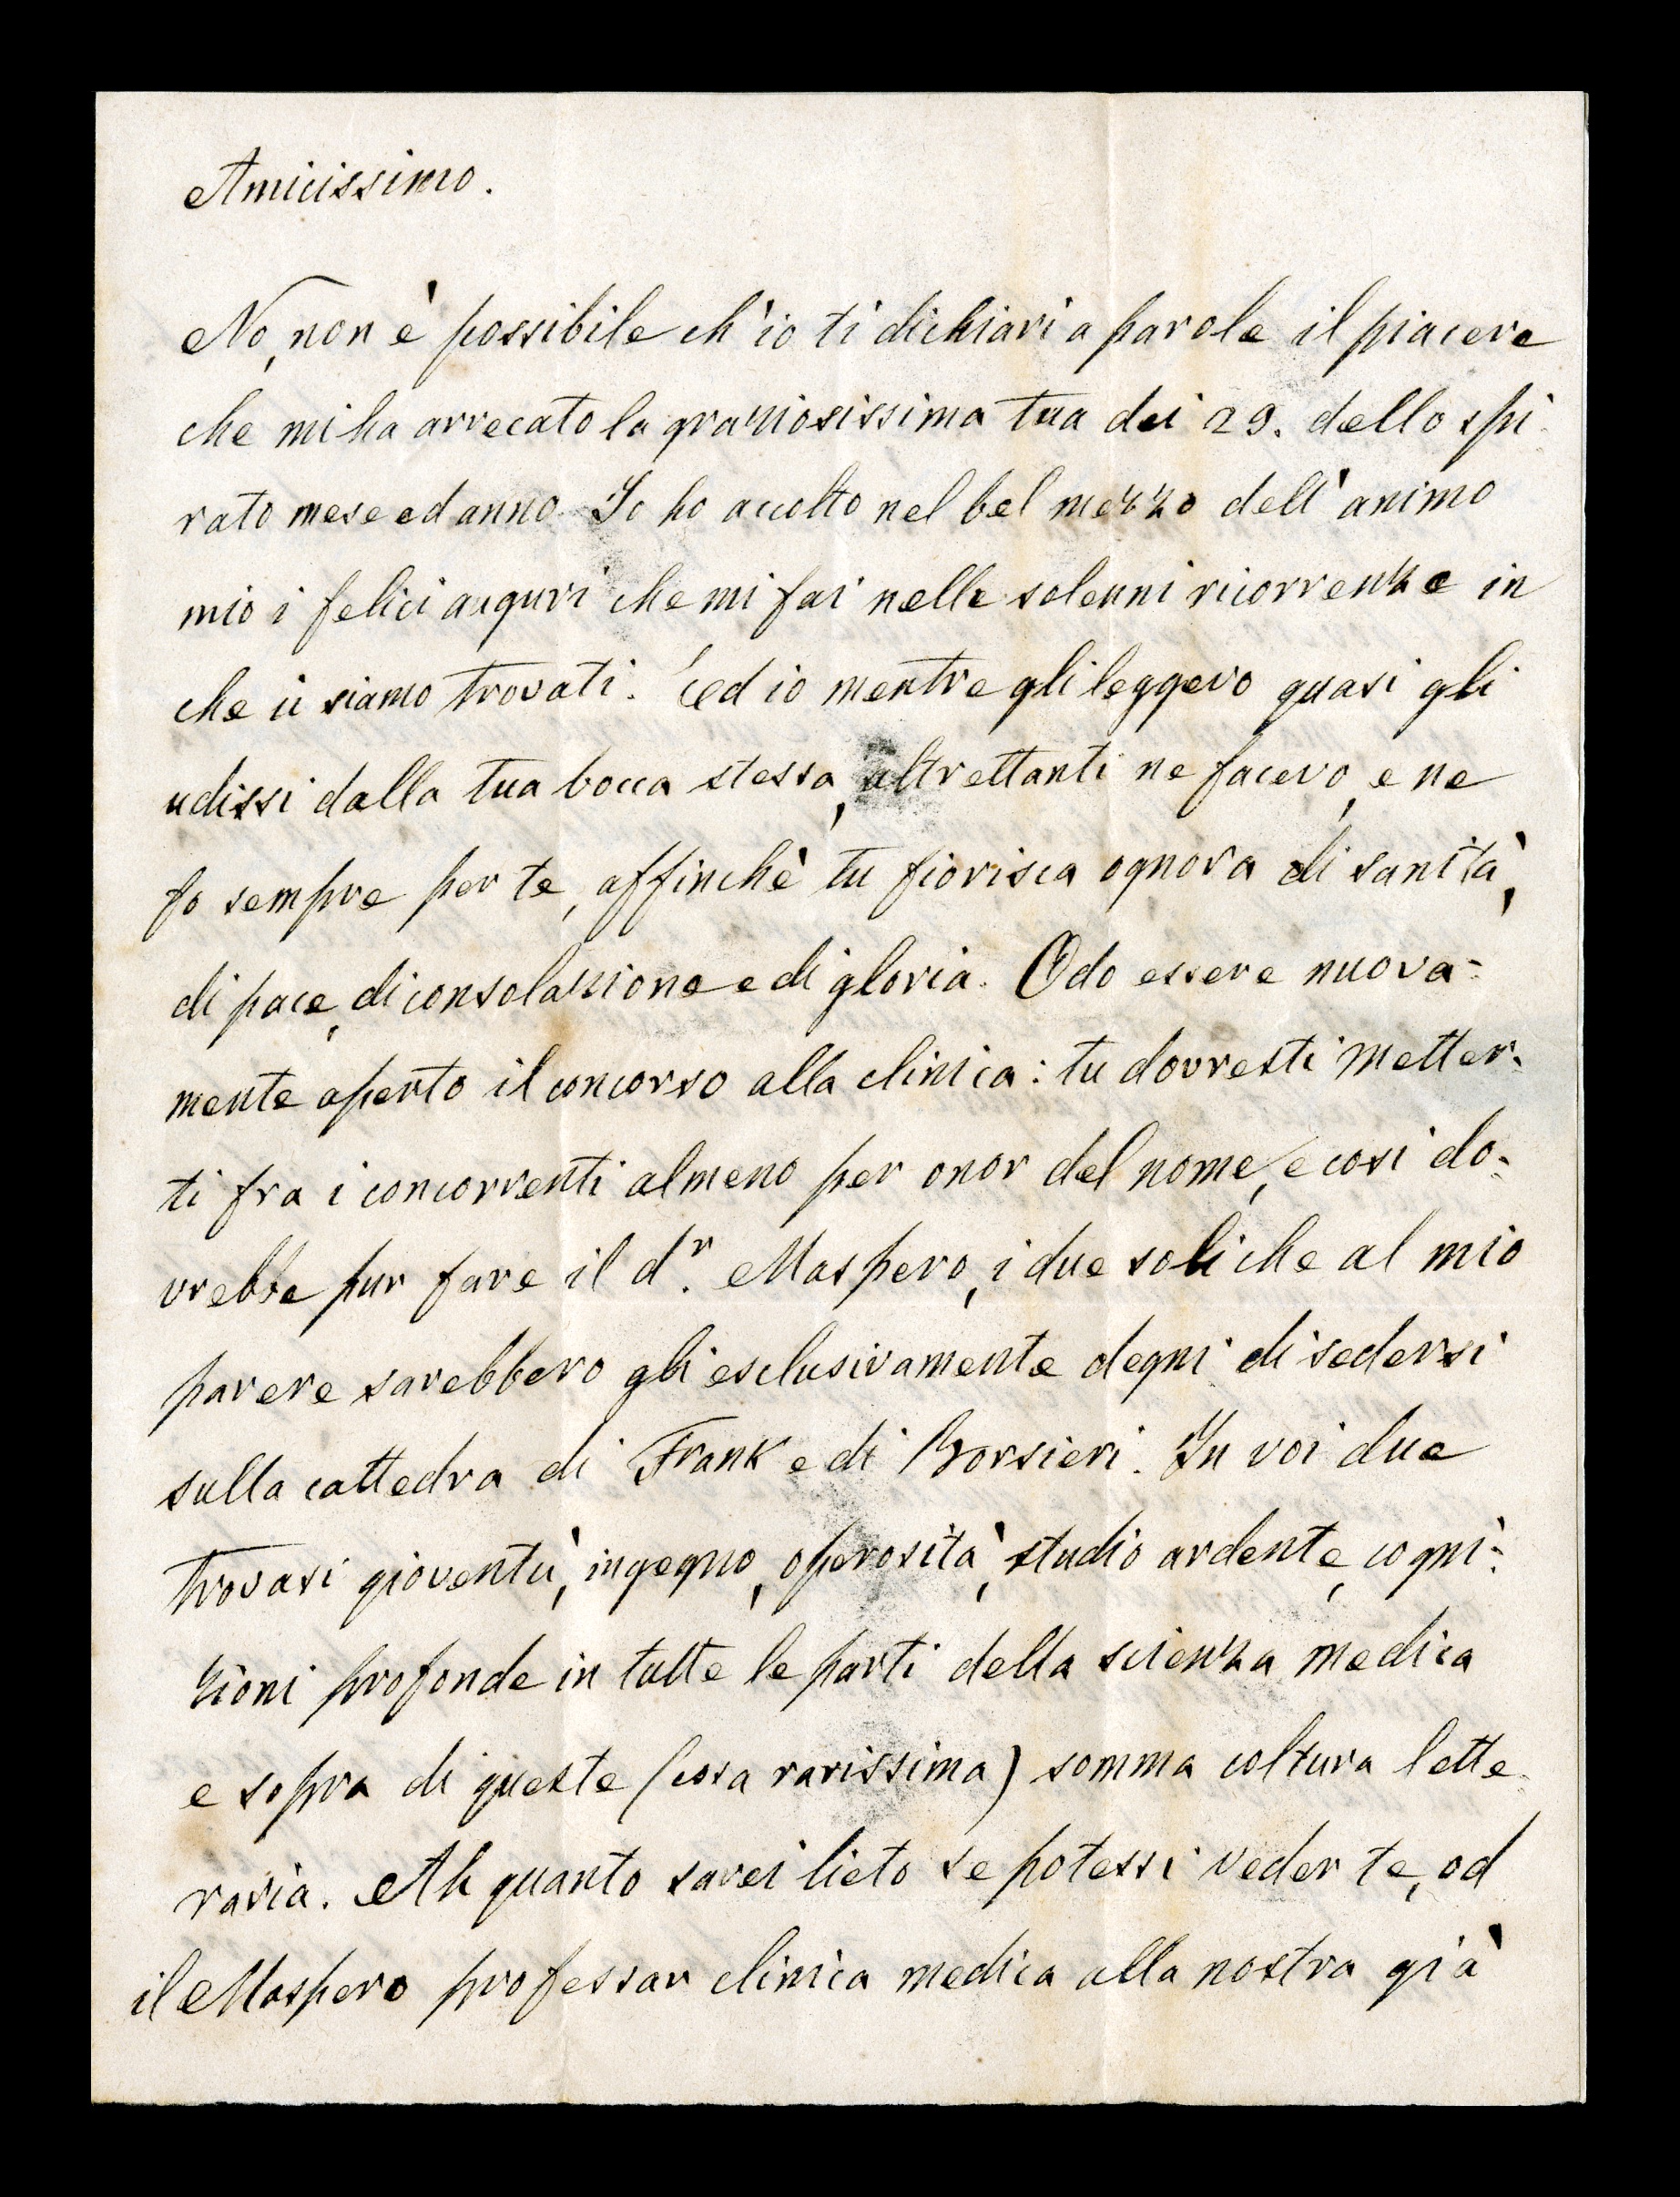 Amicissimo.
No, non è possibile ch'io ti dichiari a parole il piacere
che mi ha arrecato la graziosissima tua dei 29. dello spi-
rato mese ed anno. Io ho accolto nel bel mezzo dell'animo
mio i felici auguri che mi fai nelle solenni ricorrenze in
che ci siamo trovati. Ed io mentre gli leggevo quasi gli
udissi dalla tua bocca stessa, altrettanti ne facevo, e ne
fo sempre per te, affinchè tu fiorisca ognora di sanità,
di pace, di consolazione e di gloria. Odo essere nuova-
mente aperto il concorso alla clinica: tu dovresti metter-
ti fra i concorrenti almeno per onor del nome, e così do-
vrebbe pur fare il d.r Maspero, i due soli che al mio
parere sarebbero gli esclusivamente degni di sedersi
sulla cattedra di Frank e di Borsieri. In voi due
trovasi gioventù, ingegno, operosità, studio ardente, cogni-
zioni profonde in tutte le parti della scienza medica
e sopra di queste (cosa rarissima) somma coltura lette-
raria. Ah quanto sarei lieto se potessi veder te, od
il Maspero professar clinica medica alla nostra già